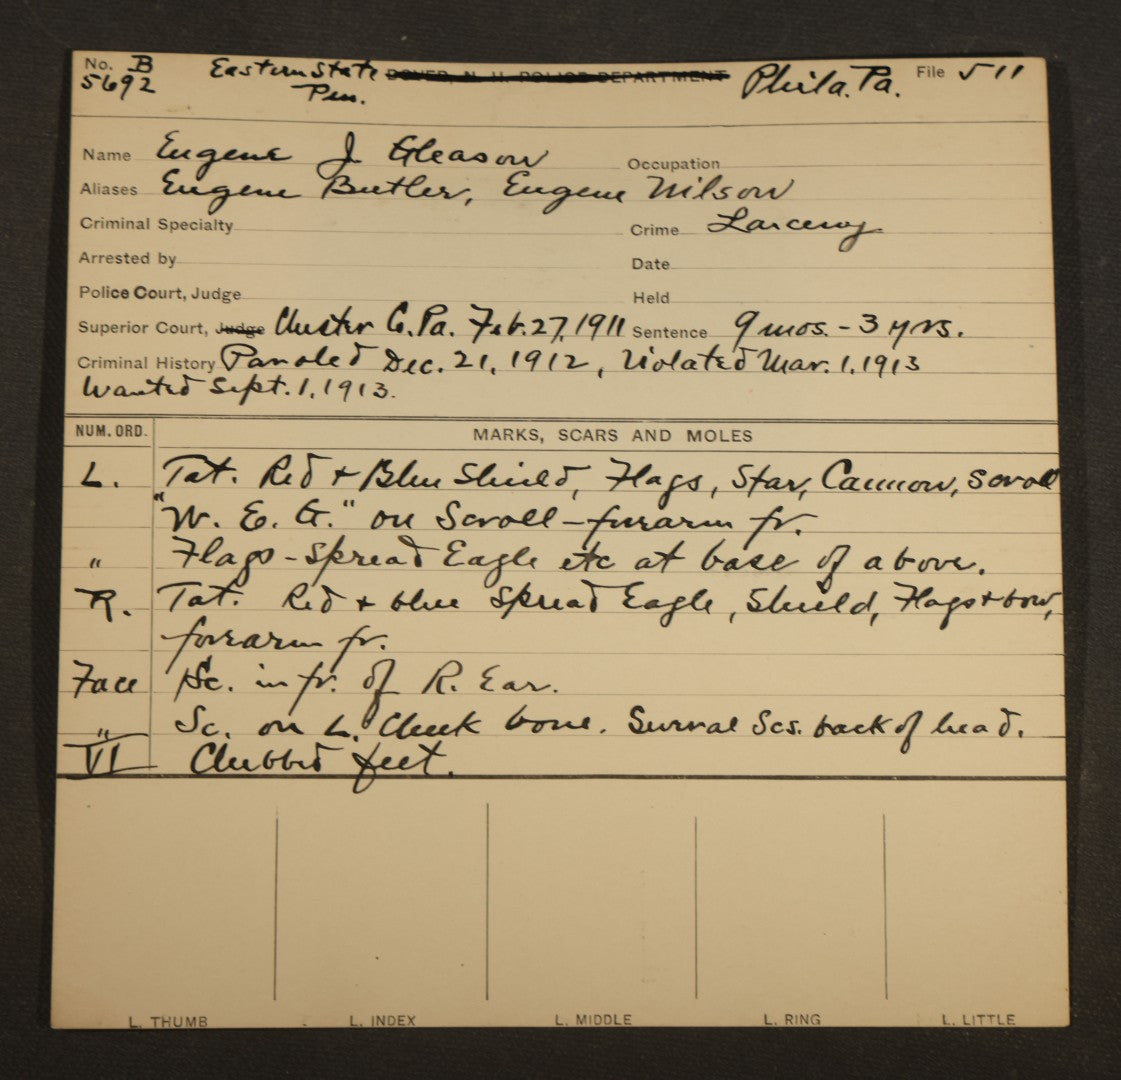 No. B Eastern State DOVER, N. H. POLICE DEPARTMENT Phila. Pa. File 511
5692 Pen.
Name Eugene J. Gleason Occupation
Aliases Eugene Butler, Eugene Wilson
Criminal Specialty Crime Larceny
Arrested by Date
Police Court, Judge Held
Superior Court, Judge Chester Co. Pa. Feb. 27, 1911 Sentence 9 mos. - 3 yrs.
Criminal History Paroled Dec. 21, 1912, Violated Mar. 1, 1913
Wanted Sept. 1, 1913.
NUM. ORD. MARKS, SCARS AND MOLES
L. Tat. Red + Blue Shield, Flags, Star, Cannon, Scroll
"W. E. G." on Scroll - forearm fr.
" Flags - Spread Eagle etc at base of above.
R. Tat. Red + blue Spread Eagle, Shield, Flags + bow,
forearm fr.
Face Sc. in fr. of R. Ear.
" Sc. on L. Cheek bone. Several Scs. back of head.
VI Clubbed feet.
L. THUMB L. INDEX L. MIDDLE L. RING L. LITTLE